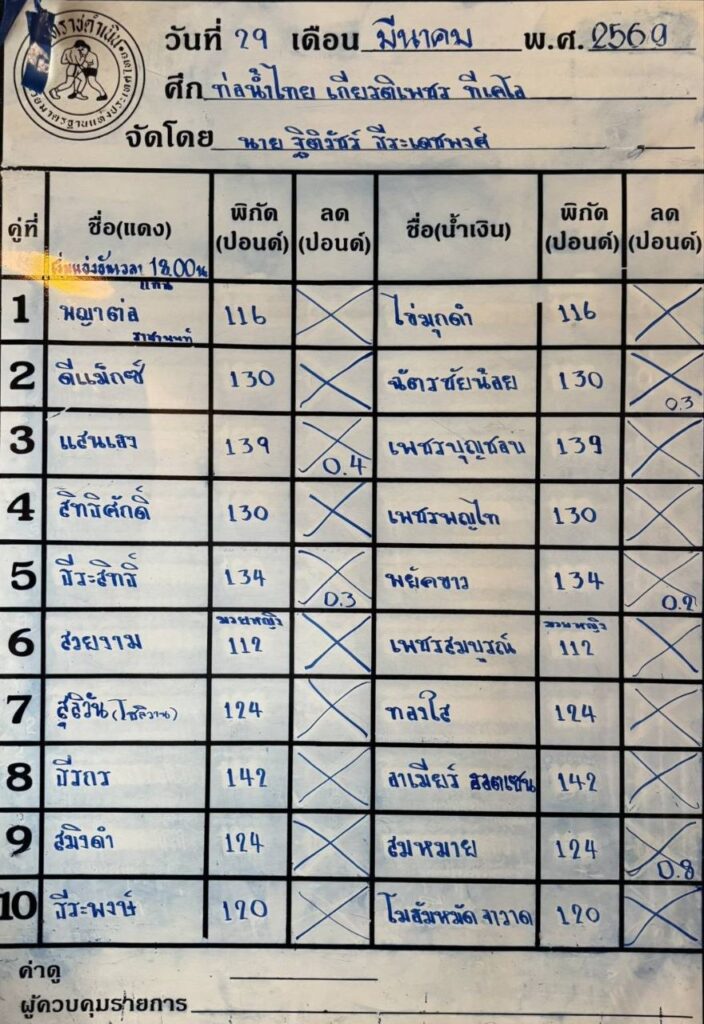 วันที่ 29 เดือน มีนาคม พ.ศ. 2569
ศึก ท่อน้ำไทย เกียรติเพชร ทีเคโอ
จัดโดย นาย ฐิติวัชร์ ธีระเดชพงศ์
คู่ที่ ชื่อ(แดง) พิกัด (ปอนด์) ลด (ปอนด์) ชื่อ(น้ำเงิน) พิกัด (ปอนด์) ลด (ปอนด์)
เริ่มแข่งขันเวลา 18.00 น
แทน
1 พญาต่อ 116 ไข่มุกดำ 116
ราชานนท์
2 ดีแม็กซ์ 130 ฉัตรชัยน้อย 130 0.3
3 แสนเฮง 139 0.4 เพชรบุญชอบ 139
4 สิทธิศักดิ์ 130 เพชรพญไท 130
5 ธีระสิทธิ์ 134 0.3 พยัคขาว 134 0.2
มวยหญิง มวยหญิง
6 สวยงาม 112 เพชรสมบูรณ์ 112
7 สุลิวัน (โซลิวาน) 124 124
8 ธีรถร 142 ลาเมียร์ 142
9 สมิงดำ 124 สมหมาย 124 0.8
10 ธีระพงษ์ 120 โมฮัมหมัด จาวาด 120
ค่าดู
ผู้ควบคุมรายการ